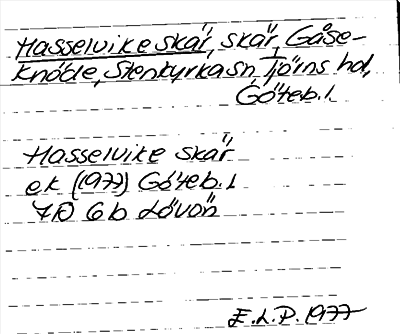 Hasselvike skär, skär, Gåse-
knöde, Stenkyrka sn, Tjörns hd,
Göteb. l.
Hasselvike skär
ek (1977) Göteb. l
7B 6b Lövön
E.L.P. 1977